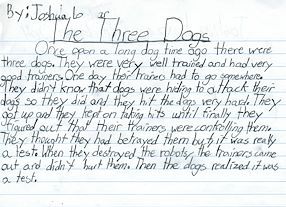 By: Joshua, L
The Three Dogs
Once opon a long dog time ago there were
three dogs. They were very well trained and had very
good trainers. One day their trainers had to go somewhere.
They didn't know that dogs were hiding to attack their
dogs so they did and they hit the dogs very hard. They
got up and they kept on taking hits until finally they
figured out that their trainers were controlling them.
They thought they had betrayed them but it was really
a test. When they destroyed the robots, the trainers came
out and didn't hurt them. Then the dogs realized it was
a test.